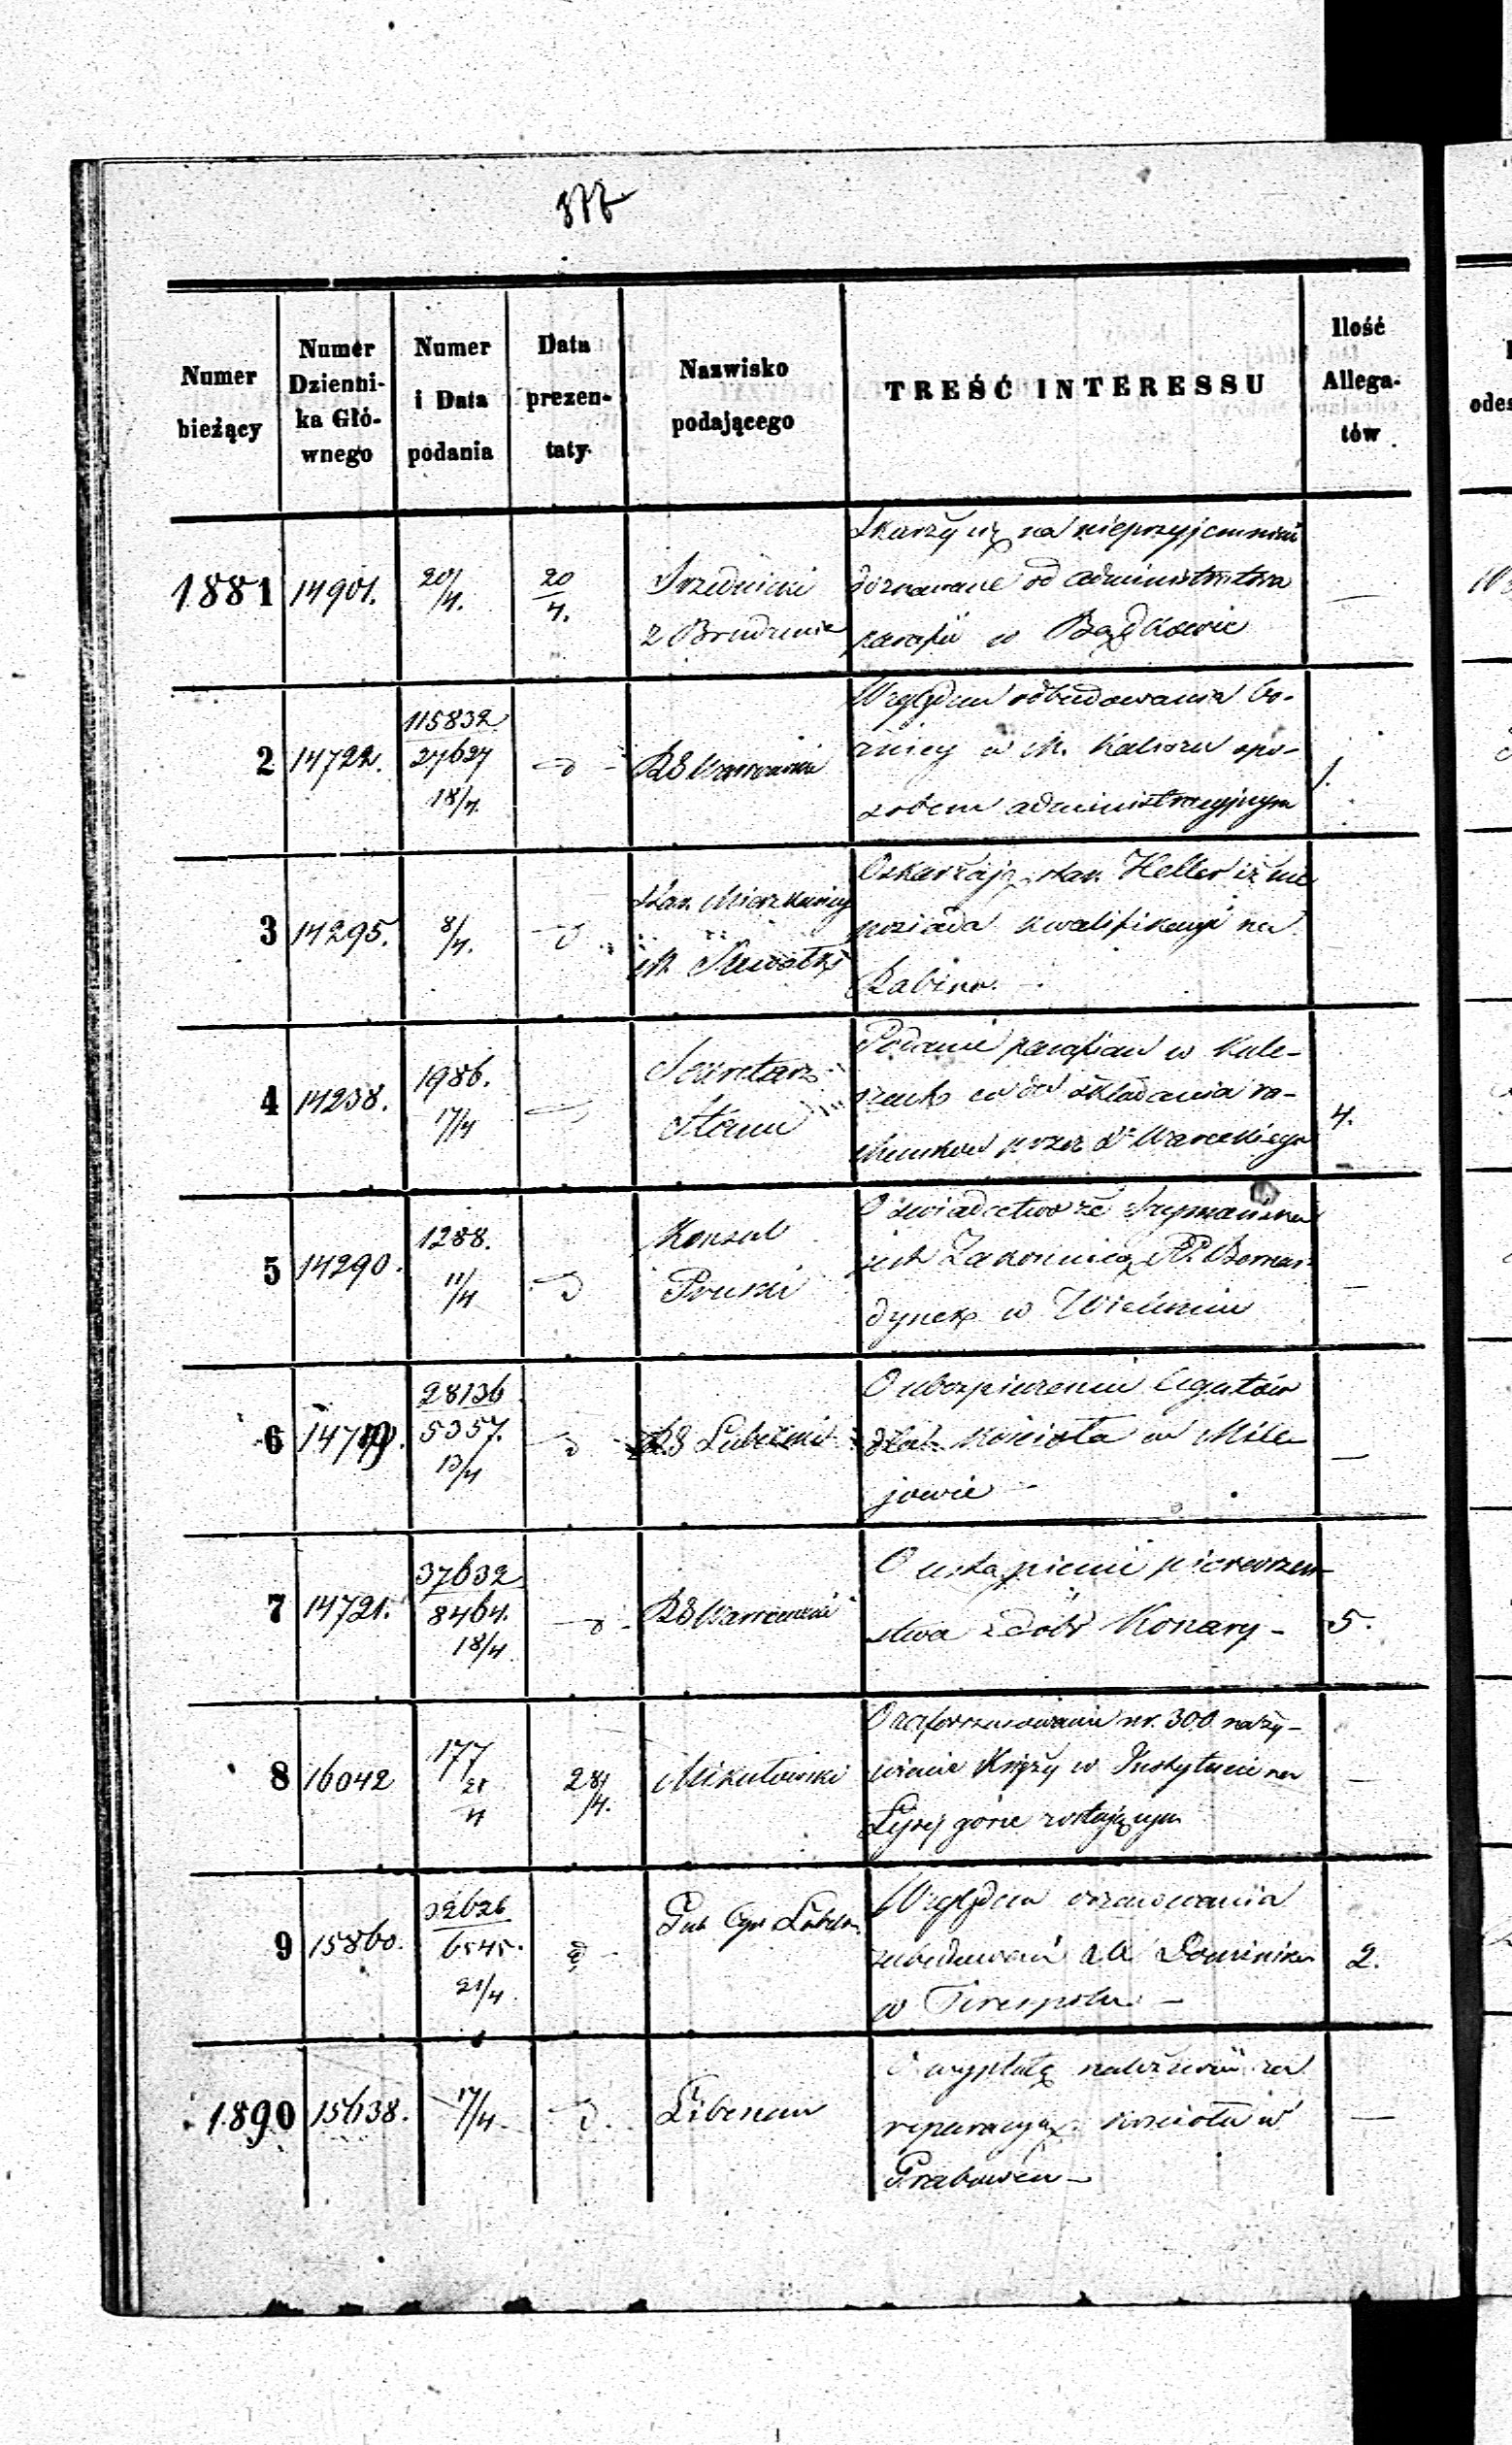 377
Numer bieżący
Numer Dzienni-ka Głó-wnego
Numer i Data podania
Data prezen-taty
Nazwisko podającego
TREŚĆ INTERESSU
Ilość Allega-tów
1881 14901. 20/4. 20/4. Srzednicki z Brudzenia
Skarży się na nieprzyjemności
doznawane od administratora
parafii w Bądkowie —
2 14722. 115832/27627 18/4. d RG Warszawski
Względem odbudowania bo-
żnicy w M. Kaliszu spo-
sobem administracyjnym 1.
3 14295. 8/4. d Star. Mieszkańcy M. Suwałk
Oskarżają star. Heller iż nie
posiada kwalifikacyi na
Rabina. —
4 14238. 1986. 17/4 Sekretarz Stanu
Podanie parafian w Kule-
szach co do składania ra-
chunków przez Xa Wareckiego 4.
5 14290. 1288. 11/4 d Konsul Pruski
O świadectwo że Szymańska
jest Zakonnicą PP. Bernar-
dynek w Wieluniu —
6 28136/5357. 13/4 d RG Lubelski
O ubezpieczeniu legatów
dla Kościoła w Mile-
jowie —
7 14721. 37632/8464. 18/4. d RG Warszawski
O ustąpienie pierwszeń-
stwa z dóbr Konary - 5.
8 16042 177 21/4 28/4. Mikułowski
O zaforszusowanie sr. 300 na ży-
wienie Księży w Instytucie na
Łysej górze zostających —
9 15860. 32626/6545. 21/4. d Gub Cyw Lubels.
Względem
zabudowań XX Dominika
w Terespolu. — 2.
1890 15638. 17/4. d. Libenau
O wypłatę należności za
reparacyą kościoła w
Grabowcu —